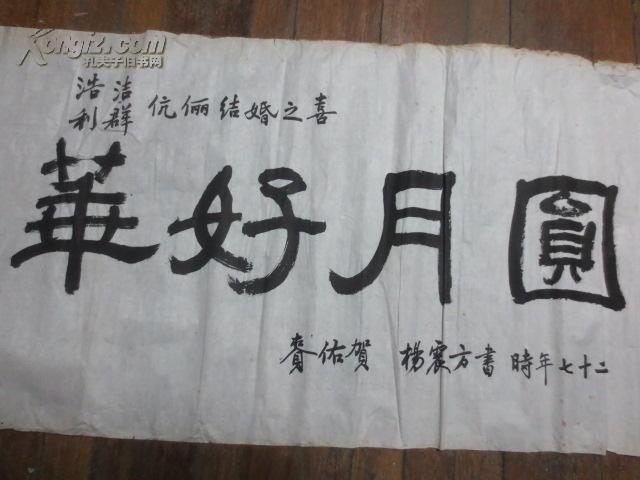 Kongfz.com
孔夫子旧书网
浩 洁
利 群 伉俪结婚之喜
華好月圓
佑賀 楊震方書 時年七十二